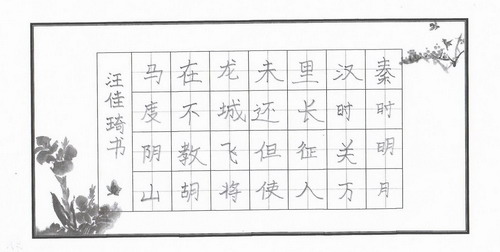 秦时明月
汉时关万
里长征人
未还但使
龙城飞将
在不教胡
马度阴山
汪佳琦书